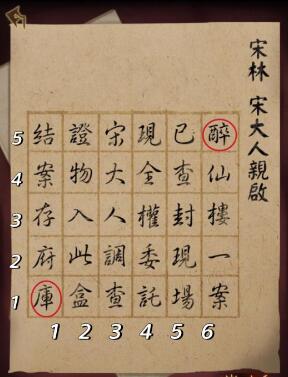 宋林 宋大人親啟
醉仙樓一案
已查封現場
現全權委託
宋大人調查
證物入此盒
結案存府庫
5
4
3
2
1
1 2 3 4 5 6